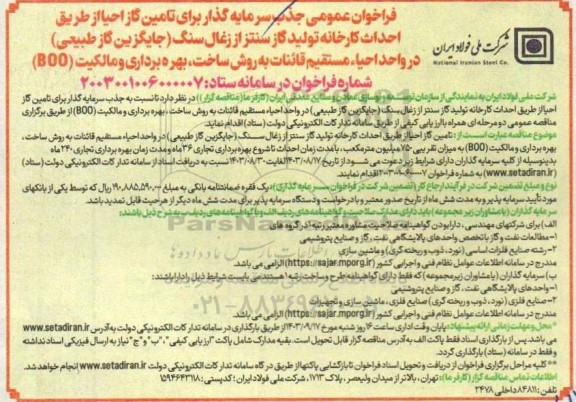 فراخوان عمومی جذب سرمایه گذار برای تامین گاز احیا از طریق
احداث کارخانه تولید گاز سنتز از زغال سنگ (جایگزین گاز طبیعی)
در واحد احیاء مستقیم قائنات به روش ساخت، بهره برداری و مالکیت (BOO)
شرکت ملی فولاد ایران
National Iranian Steel Co.
شماره فراخوان در سامانه ستاد: ۲۰۰۳۰۰۱۰۰۶۰۰۰۰۰۷
شرکت ملی فولاد ایران به نمایندگی از سازمان توسعه و نوسازی معادن و صنایع معدنی ایران (کارفرما/مناقصه گزار) در نظر دارد نسبت به جذب سرمایه گذار برای تامین گاز
احیا از طریق احداث کارخانه تولید گاز سنتز از زغال سنگ (جایگزین گاز طبیعی) در واحد احیاء مستقیم قائنات به روش ساخت، بهره برداری و مالکیت (BOO) از طریق برگزاری
مناقصه عمومی دو مرحله ای همراه با ارزیابی کیفی از طریق سامانه تدارکات الکترونیکی دولت (ستاد) اقدام نماید.
موضوع مناقصه عبارت است از: تامین گاز احیا از طریق احداث کارخانه تولید گاز سنتز از زغال سنگ (جایگزین گاز طبیعی) در واحد احیاء مستقیم قائنات به روش ساخت،
بهره برداری و مالکیت (BOO) به میزان تقریبی ۷۵۰ میلیون مترمکعب، با مدت زمان احداث تا شروع بهره برداری تجاری ۳۶ ماه و مدت زمان بهره برداری تجاری ۲۴۰ ماه
بدینوسیله از کلیه سرمایه گذاران دارای شرایط زیر دعوت می شود از تاریخ ۱۴۰۳/۰۸/۱۷ لغایت ۱۴۰۳/۰۸/۳۰ نسبت به دریافت اسناد از سامانه تدارکات الکترونیکی دولت (ستاد)
(www.setadiran.ir) به شماره فراخوان ۲۰۰۳۰۰۱۰۰۶۰۰۰۰۰۷ اقدام نمایند.
نوع و مبلغ تضمین شرکت در فرآیند ارجاع کار (تضمین شرکت در فراخوان سرمایه گذاری): یک فقره ضمانتنامه بانکی به مبلغ ۱۹۰,۸۸۵,۵۹۰,۰۰۰ ریال که توسط یکی از بانکهای
مورد تأیید سرمایه پذیر و به مدت شش ماه از تاریخ صدور معتبر و با درخواست دستگاه سرمایه پذیر برای مدت شش ماه دیگر از هر حیث قابل تمدید باشد.
سرمایه گذاران (یا مشاوران زیر مجموعه) باید دارای مدارک صلاحیت و گواهینامه های ردیف الف و یا گواهینامه های ردیف ب به شرح ذیل باشند:
الف) برای شرکتهای مهندسی، دارا بودن گواهینامه صلاحیت مشاوره معتبر رتبه ۱ در گروه های
۱- مطالعات نفت و گاز با تخصص واحدهای پالایشگاهی نفت، گاز و صنایع پتروشیمی
۲- رشته صنایع فلزات اساسی (نورد، ذوب و ریخته گری) و ماشین سازی
مندرج در سامانه اطلاعات عوامل نظام فنی و اجرایی کشور (https://sajar.mporg.ir) الزامی می باشد.
ب) سرمایه گذاران (یا مشاوران زیرمجموعه) که فقط دارای گواهینامه طرح و ساخت رتبه ۱ هستند می بایست شرایط ذیل را دارا باشند:
۱- واحدهای پالایشگاهی نفت، گاز و صنایع پتروشیمی
۲- صنایع فلزی (نورد، ذوب و ریخته گری) صنایع فلزی، ماشین سازی و تجهیزات
مندرج در سامانه اطلاعات عوامل نظام فنی و اجرایی کشور (https://sajar.mporg.ir) الزامی می باشد.
محل و مهلت زمانی ارائه پیشنهاد: پایان وقت اداری ساعت ۱۶ روز شنبه مورخ ۱۴۰۳/۰۹/۱۷ از طریق بارگذاری در سامانه تدارکات الکترونیکی دولت به آدرس www.setadiran.ir
می باشد. پس از بارگذاری اسناد فقط پاکت الف به آدرس مناقصه گزار قابل تحویل است. بقیه مدارک شامل پاکت "ارزیابی کیفی"، "ب" و "ج" نیاز به ارسال فیزیکی اسناد نداشته
و فقط در سامانه (ستاد) بارگذاری گردد.
**کلیه مراحل برگزاری فراخوان از دریافت و تحویل اسناد فراخوان تا بازگشایی پاکتها از طریق درگاه سامانه تدارکات الکترونیکی دولت www.setadiran.ir انجام خواهد شد.
اطلاعات تماس مناقصه گزار (کارفرما): تهران، بالاتر از میدان ولیعصر، پلاک ۱۷۱۳، شرکت ملی فولاد ایران؛ کدپستی: ۱۵۹۴۶۴۳۱۱۸
تلفن: ۸۴۸۱۱ داخلی ۲۴۷۸
ParsNamadData
۰۲۱-۸۸۳۴۹